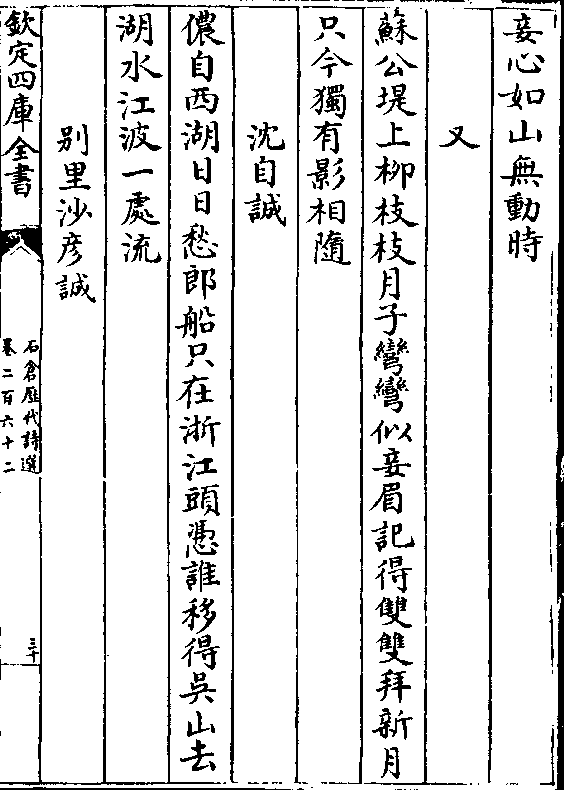 妾心如山無動時
又
蘇公堤上柳枝枝月子彎彎似妾眉記得雙雙拜新月
只今獨有影相隨
沈自誠
儂自西湖日日愁郎船只在浙江頭憑誰移得吳山去
湖水江波一處流
别里沙彦誠
欽定四庫全書
石倉歴代詩選
卷二百六十二
三十